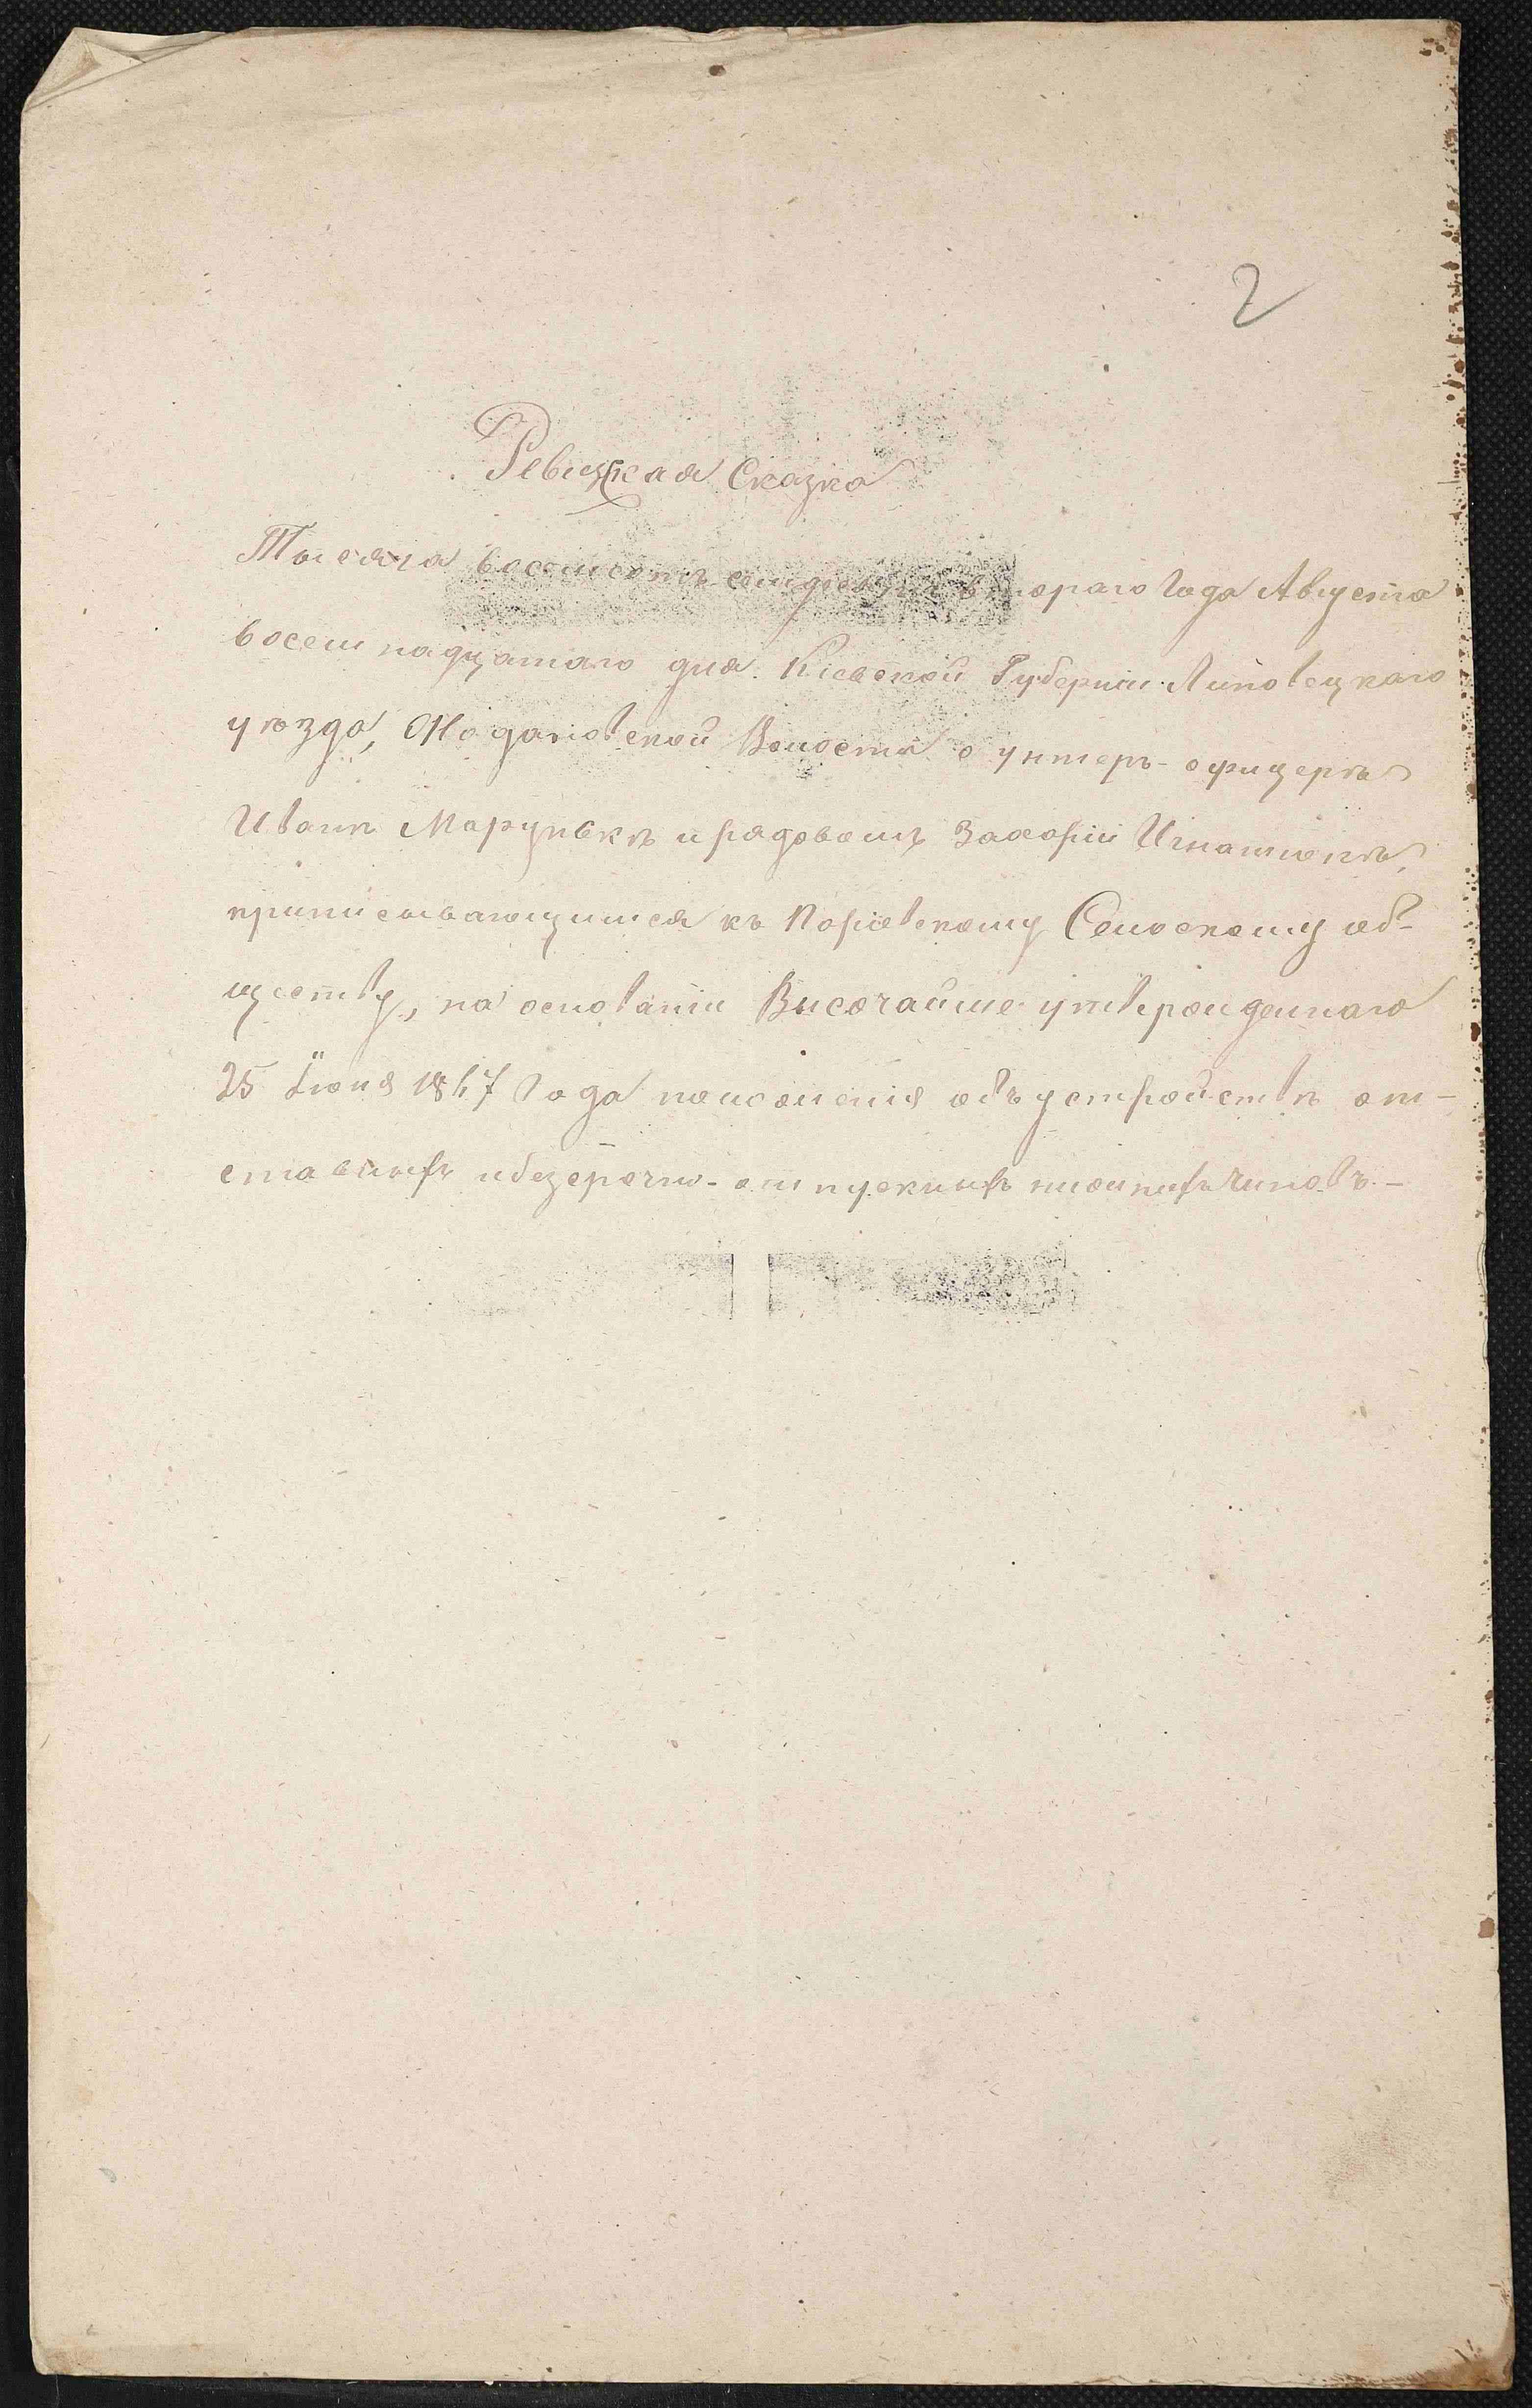 2
Ревизская Сказка
Тысяча восемсотъ семдесятъ втораго Года Августа
восемнадцатаго дня. Кіевской Губерніи Липовецкаго
уѣзда, Жадановской Волости о унтеръ-офицерѣ
Иванѣ Марунькѣ и рядовомъ Захаріи Игнатюкѣ,
приписывающимся къ Паріевскому Селоскому об-
ществу, на основаніи Высочайше утвержденнаго
25 Іюня 1867 Года положенія объ устройствѣ от-
ставныхъ и безсрочно-отпускныхъ нижнихъ чиновъ. -